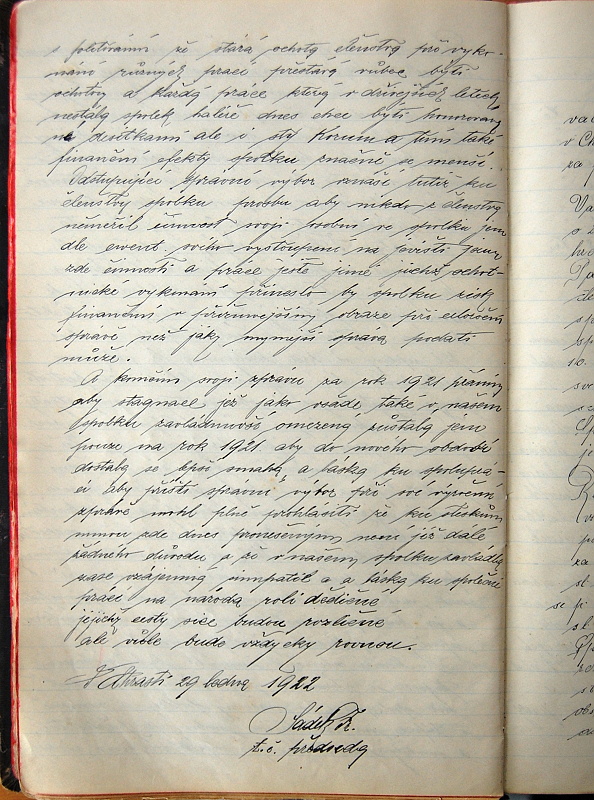 s politováním že stará ochota členstva při vyko-
nání různých prací přestává vůbec býti
ochotou a každá práce která v dřívějších letech
nestála spolek haléře dnes chce býti honorovaný
ne desítkami ale i sty korun a tím také
finanční efekty spolku značně se menší.
Odstupující správní výbor vznáší tudíž ku
členstvu spolku prosbu aby nikdo z členstva
neměřil činnost svoji osobní ve spolku jen
dle event. svého vystoupení na jevišti jsou
zde činnosti a práce ještě jiné jichž ochot-
nické vykonání přineslo by spolku zisk
finanční v příznivějším obraze při celoroční
správě než jaký nynější správa podati
může.
A končím svoji zprávu za rok 1921 přáním
aby stagnace jež jako všude také v našem
spolku zavládnuvší omezena zůstala jen
pouze na rok 1921 aby do nového období
dostala se lepší snaha a láska ku spoluprá-
ci aby příští správní výbor při své výroční
zprávě mohl plně prohlásiti že ku steskům
mnou zde dnes proneseným není již dále
žádného důvodu a že v našem spolku zavládla
zase vzájemná simpatie a a láska ku společné
práci na národa roli dědičné
jejichž cesty sice budou rozličné
ale vůle bude vždycky rovnou.
V Chrasti 29 ledna 1922
t. č. předseda